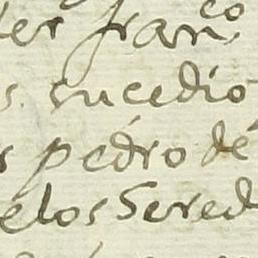 ter fran.co
s. sucedio
r pedro de
elos Sered